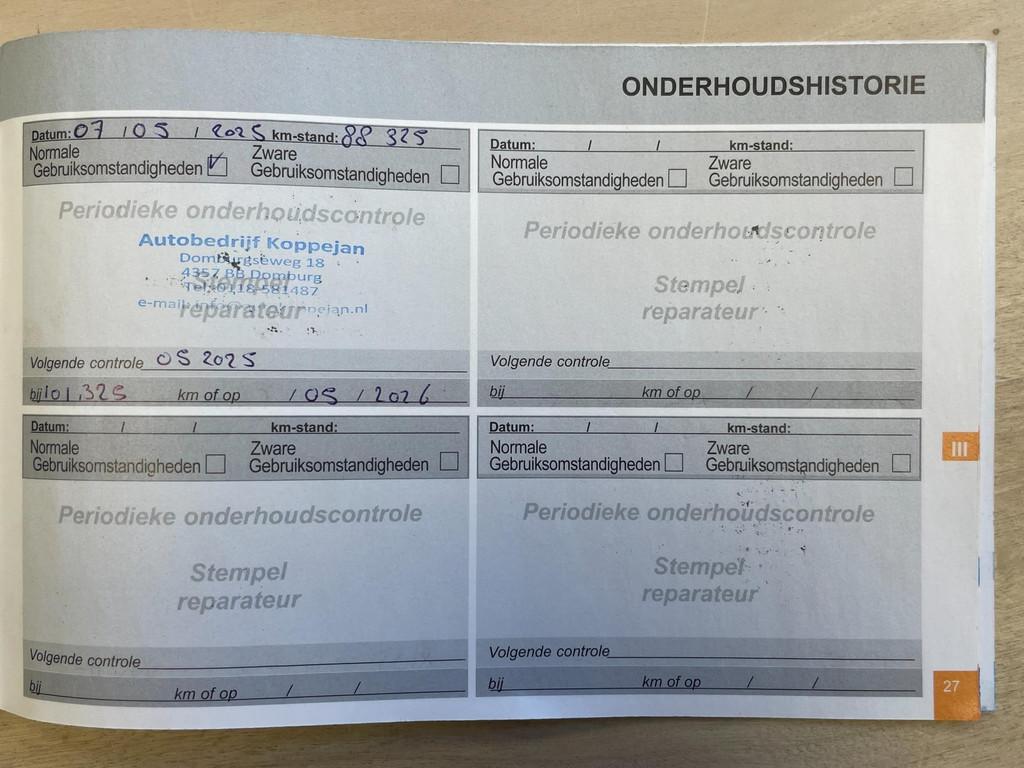 ONDERHOUDSHISTORIE
Datum: 07 / 05 / 2025 km-stand: 88 325
Normale Gebruiksomstandigheden Zware Gebruiksomstandigheden
Periodieke onderhoudscontrole
Autobedrijf Koppejan
Domburgseweg 18
4357 BB Domburg
Tel. 0118-581487
e-mail: info@autokoppejan.nl
Stempel
reparateur
Volgende controle 05 2025
bij 101.325 km of op / 05 / 2026
Datum: / / km-stand:
Normale Gebruiksomstandigheden Zware Gebruiksomstandigheden
Periodieke onderhoudscontrole
Stempel
reparateur
Volgende controle
bij km of op / /
Datum: / / km-stand:
Normale Gebruiksomstandigheden Zware Gebruiksomstandigheden
Periodieke onderhoudscontrole
Stempel
reparateur
Volgende controle
bij km of op / /
Datum: / / km-stand:
Normale Gebruiksomstandigheden Zware Gebruiksomstandigheden
Periodieke onderhoudscontrole
Stempel
reparateur
Volgende controle
bij km of op / /
III
27